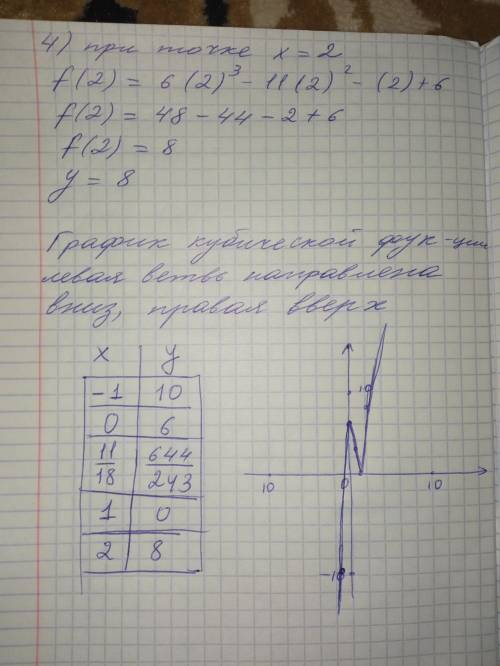 4) при точке x = 2
f(2) = 6(2)³ - 11(2)² - (2) + 6
f(2) = 48 - 44 - 2 + 6
f(2) = 8
y = 8
График кубической функ-ции
левая ветвь направлена
вниз, правая вверх
x y
-1 10
0 6
11/18 644/243
1 0
2 8
10
10 0 10
-10